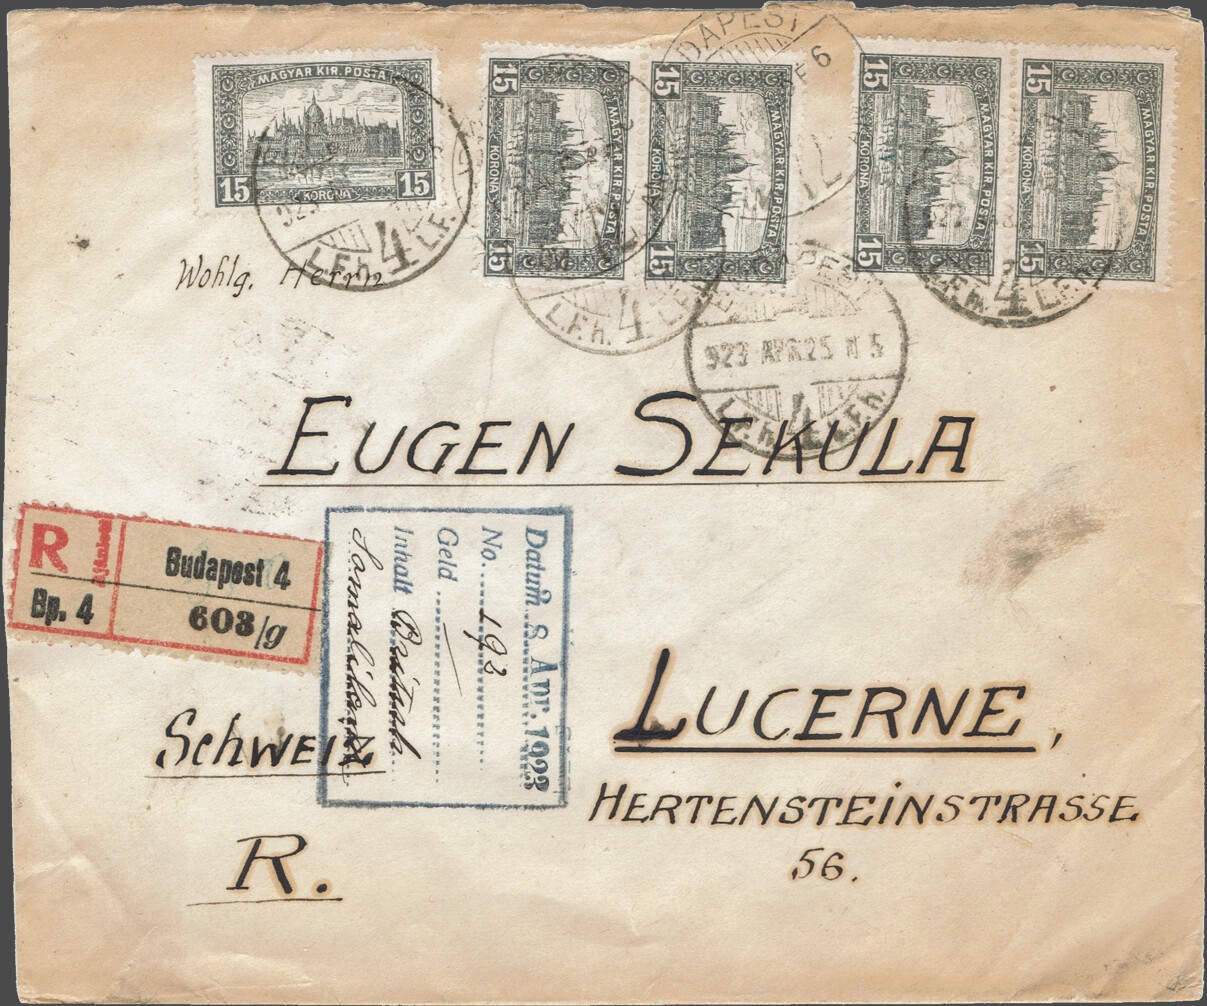 MAGYAR KIR. POSTA
15 KORONA 15
15 MAGYAR KIR. POSTA KORONA 15
15 MAGYAR KIR. POSTA KORONA 15
15 MAGYAR KIR. POSTA KORONA 15
15 MAGYAR KIR. POSTA KORONA 15
BUDAPEST
923
L.F.h. 4 L.F.
L.F.h. 4
4 L.F.
BUDAPEST
923 APR. 25 N 5
L.F.h. 4 L.F.h.
Wohlg. Herrn
EUGEN SEKULA
R Ajánlott
Budapest 4
Bp. 4
603/g
Datum 8. Apr. 1923
No. 193
Geld
Inhalt Britsch
Somaliland
LUCERNE,
SCHWEIZ
HERTENSTEINSTRASSE
56.
R.